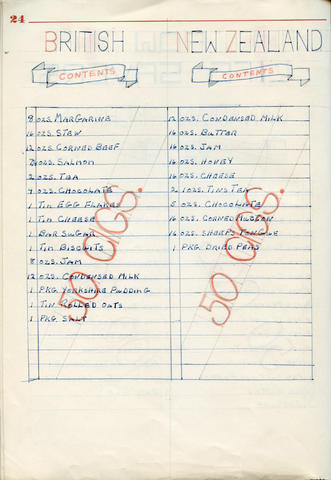 24
BRITISH
CONTENTS
8 OZS. MARGARINE
16 OZS. STEW
12 OZS. CORNED BEEF
OZS. SALMON
2 OZS. TEA
OZS. CHOCOLATE
1 TIN EGG FLAKES
1 TIN CHEESE
1 BAR SUGAR
1 TIN BISCUITS
8 OZS. JAM
12 OZS. CONDENSED MILK
1 PKG. YORKSHIRE PUDDING
1 TIN ROLLED OATS
1 PKG. SALT
50 CIGS.
NEW ZEALAND
CONTENTS
12 OZS. CONDENSED MILK
16 OZS. BUTTER
16 OZS. JAM
16 OZS. HONEY
16 OZS. CHEESE
2 1OZS. TINS TEA
5 OZS. CHOCOLATE
16 OZS. CORNED MUTTON
16 OZS. SHEEPS TONGUE
1 PKG. DRIED PEAS
50 CIGS.